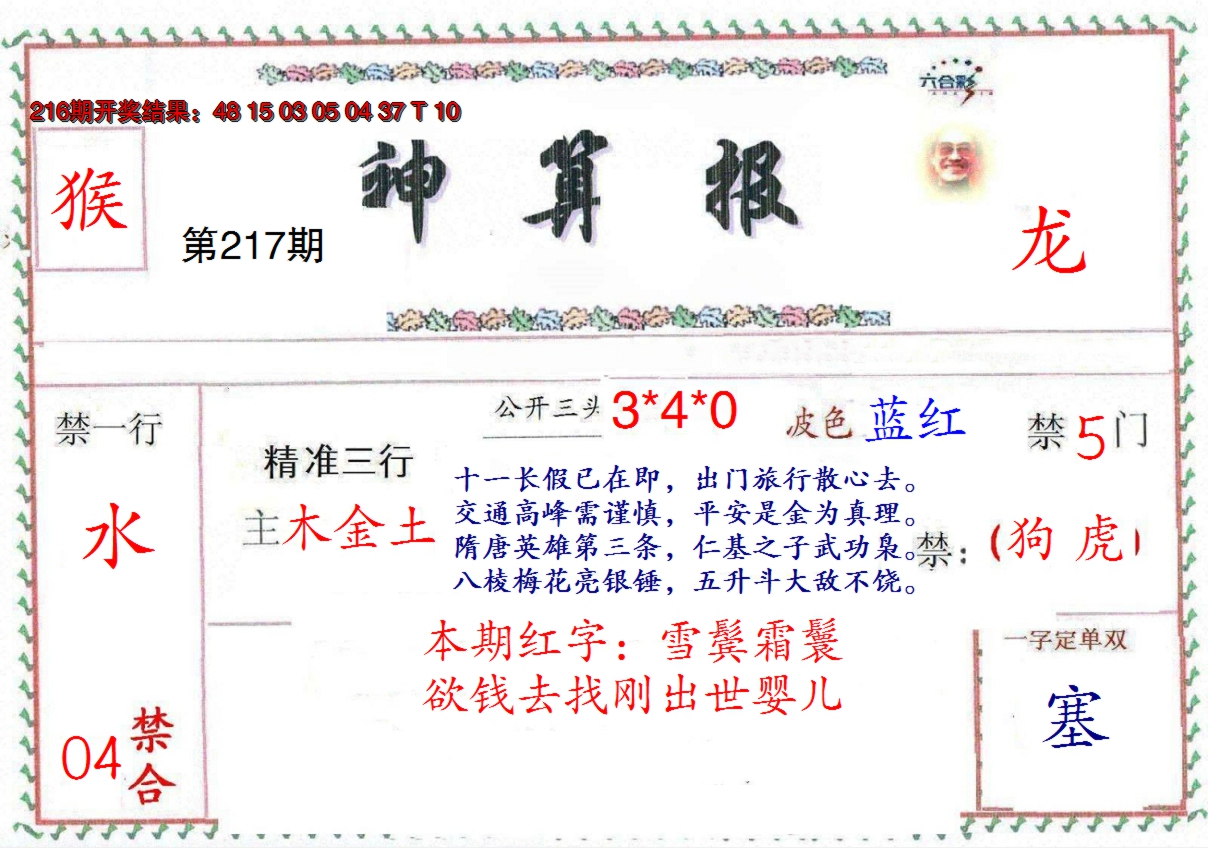 六合彩
216期开奖结果：48 15 03 05 04 37 T 10
神算报
猴
第217期
龙
禁一行
水
04
禁合
精准三行
主木金土
公开三头 3*4*0
波色 蓝红
禁5门
十一长假已在即，出门旅行散心去。
交通高峰需谨慎，平安是金为真理。
隋唐英雄第三条，仁基之子武功枭。
八棱梅花亮银锤，五升斗大敌不饶。
禁：（狗 虎）
本期红字：雪鬓霜鬟
欲钱去找刚出世婴儿
一字定单双
塞